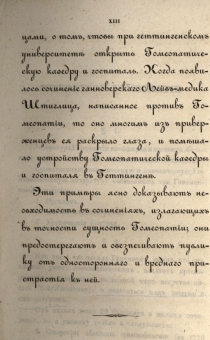 XIII
цами, о томъ, чтобы при геттингенскомъ
университетѣ открыть Гомеопатиче-
скую каѳедру и госпиталь. Когда появи-
лось сочиненіе ганноверскаго Лейбъ-медика
Штиглица, написанное противъ Гомео-
патіи, то оно многимъ изъ привер-
женцевъ ея раскрыло глаза, и помѣша-
ло устройству Гомеопатической каѳедры
и госпиталя въ Геттингенѣ.
Эти примѣры ясно доказываютъ не-
обходимость въ сочиненіяхъ, излагающихъ
въ точности сущность Гомеопатіи; они
предостерегаютъ и обезпечиваютъ публи-
ку отъ односторонняго и вреднаго при-
страстія къ ней.